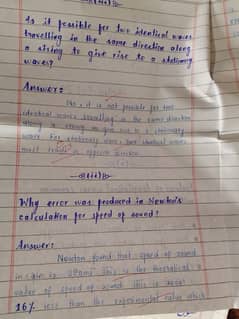 Is it possible for two identical waves
travelling in the same direction along
a string to give rise to a stationary
waves?
Answer:
No, it is not possible for two
identical waves travelling in the same direction
along a string to give rise to a stationary
wave. For stationary wave, two identical waves
must travel in opposite direction
Why error was produced in Newton's
calculation for speed of sound?
Answer:
Newton found that speed of sound
in air is 280ms this is the theoretical
value of speed of sound this is
16% less than the experimental value which